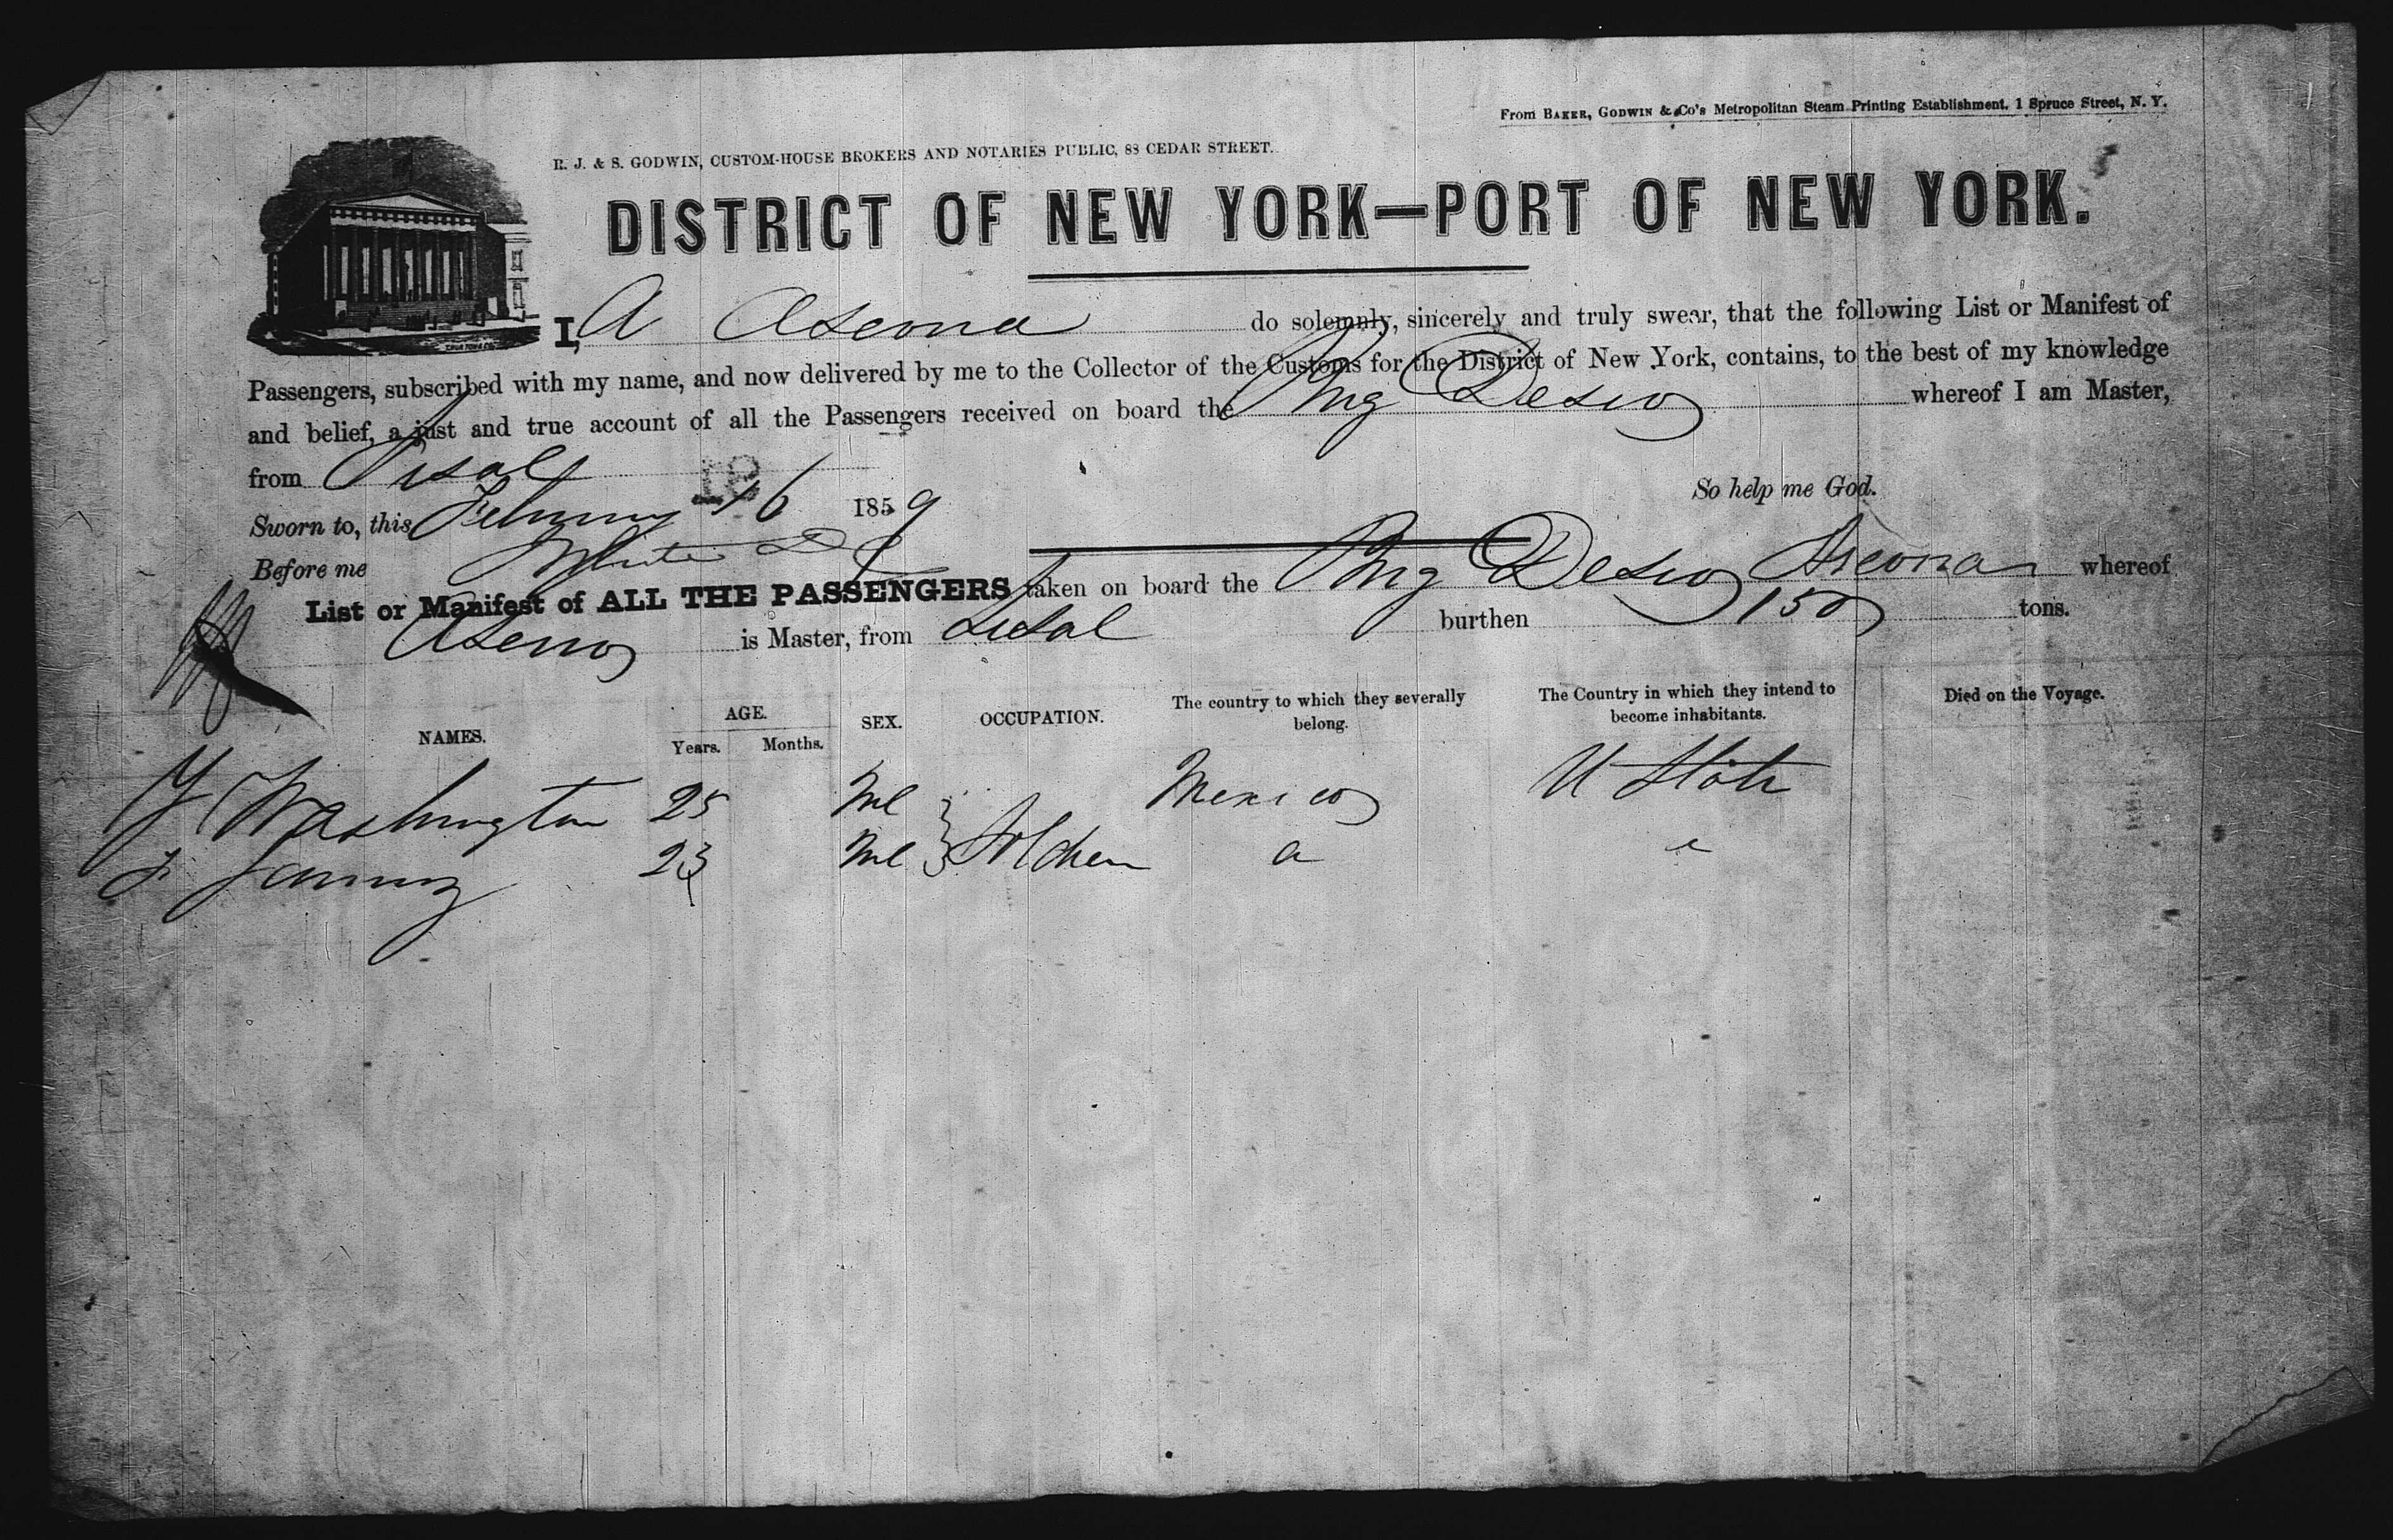 From BAKER, GODWIN & Co's Metropolitan Steam Printing Establishment, 1 Spruce Street, N. Y.
R. J. & S. GODWIN, CUSTOM-HOUSE BROKERS AND NOTARIES PUBLIC, 88 CEDAR STREET.
DISTRICT OF NEW YORK—PORT OF NEW YORK.
I, A do solemnly, sincerely and truly swear, that the following List or Manifest of
Passengers, subscribed with my name, and now delivered by me to the Collector of the Customs for the District of New York, contains, to the best of my knowledge
and belief, a just and true account of all the Passengers received on board the Brig whereof I am Master,
from Sisal
So help me God.
Sworn to, this February 16 1859
18
Before me White
List or Manifest of ALL THE PASSENGERS taken on board the Brig whereof
is Master, from Sisal burthen 150 tons.
NAMES. AGE. Years. Months. SEX. OCCUPATION. The country to which they severally belong. The Country in which they intend to become inhabitants. Died on the Voyage.
Y Washington 25 Ml Mexico U State
23 Ml